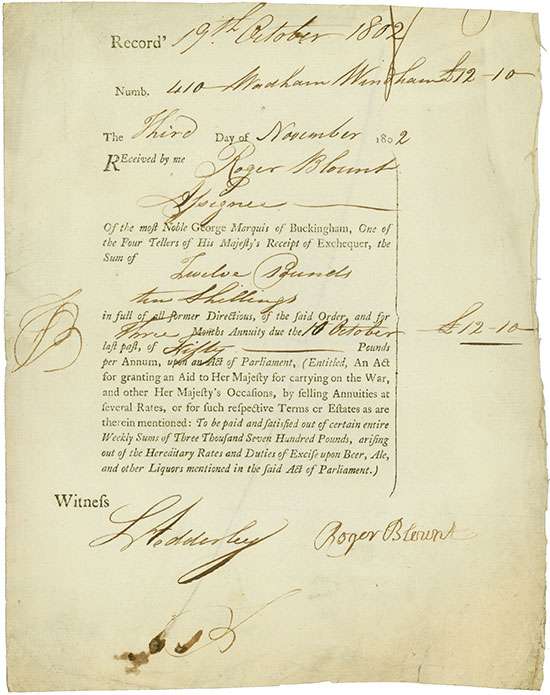 Record' 19th October 1802
Numb. 410 Wadham Windham £12-10
The Third Day of November 1802
REceived by me Roger Blount
Assignee
Of the most Noble George Marquis of Buckingham, One of
the Four Tellers of His Majesty's Receipt of Exchequer, the
Sum of Twelve Pounds
ten Shillings
in full of all former Directions, of the said Order, and for
Three Months Annuity due the 10 October £12-10
last past, of Fifty Pounds
per Annum, upon an Act of Parliament, (Entitled, An Act
for granting an Aid to Her Majesty for carrying on the War,
and other Her Majesty's Occasions, by selling Annuities at
several Rates, or for such respective Terms or Estates as are
therein mentioned: To be paid and satisfied out of certain entire
Weekly Sums of Three Thousand Seven Hundred Pounds, arising
out of the Hereditary Rates and Duties of Excise upon Beer, Ale,
and other Liquors mentioned in the said Act of Parliament.)
Witness
Adderley Roger Blount